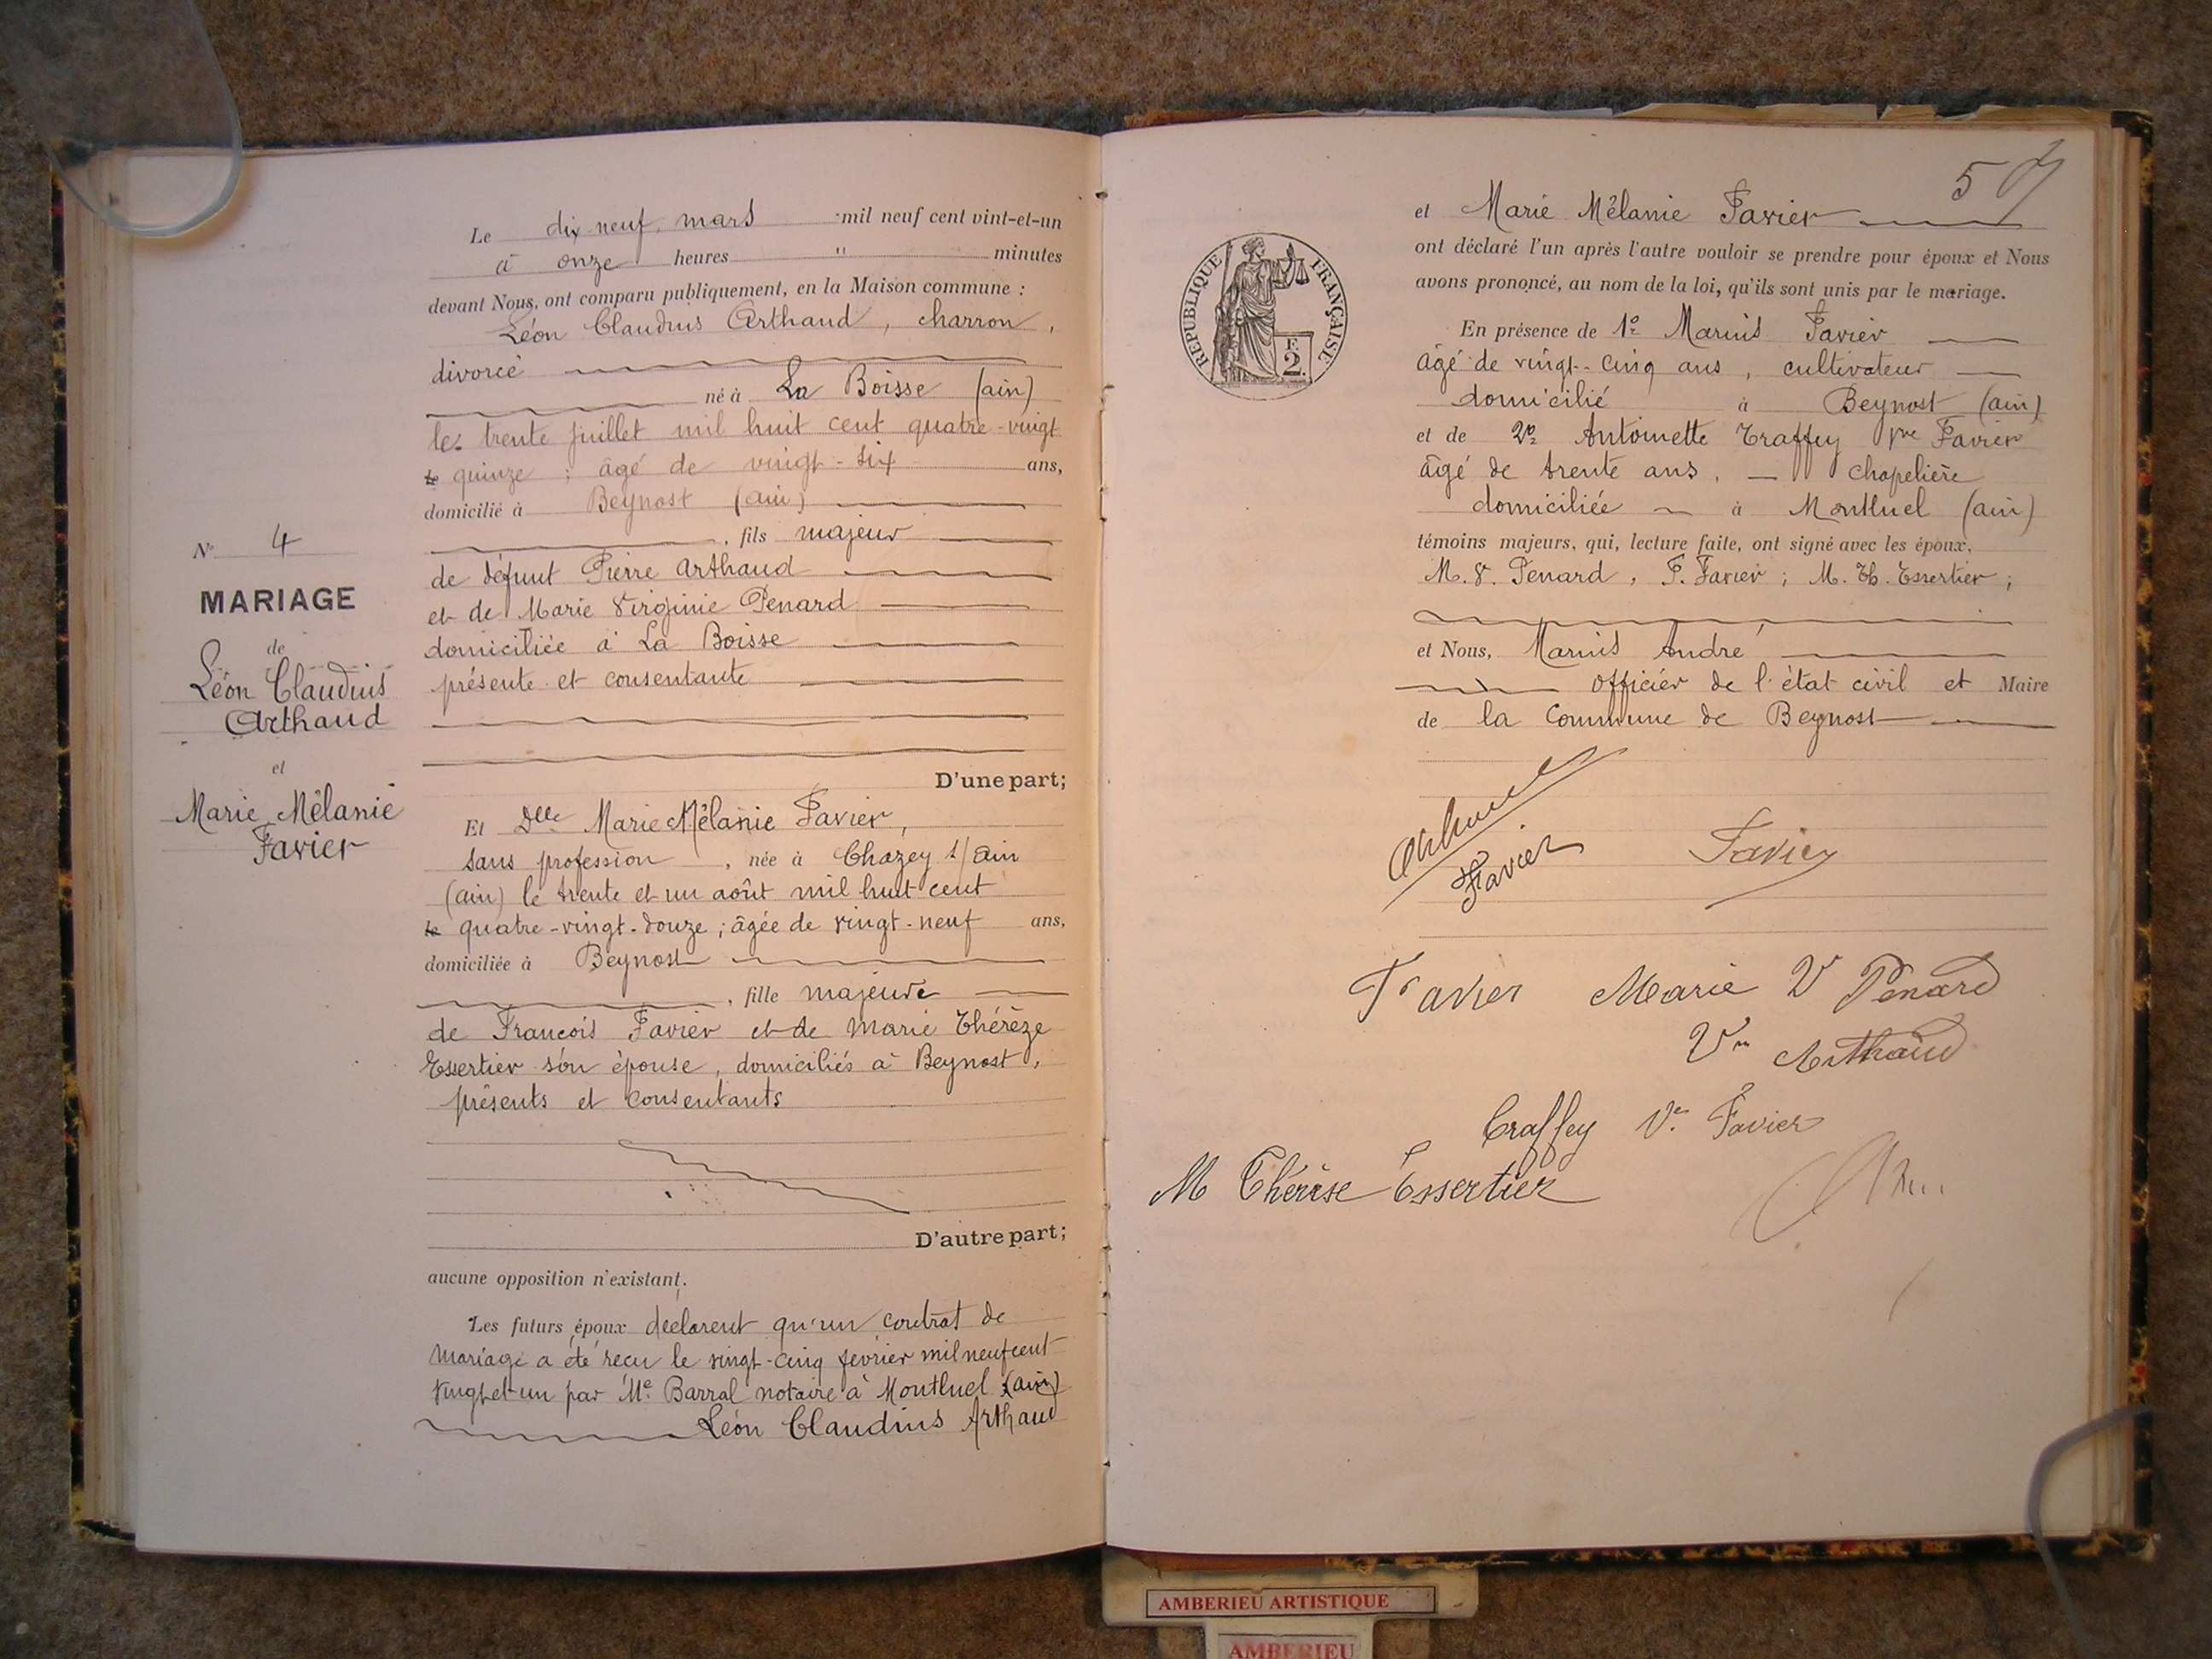 Le dix-neuf mars mil neuf cent vint-et-un
à onze heures " minutes
devant Nous, ont comparu publiquement, en la Maison commune :
Léon Claudius Arthaud, charron,
divorcé
né à La Boisse (ain)
le trente juillet mil huit cent quatre-vingt
quinze ; âgé de vingt-six ans,
domicilié à Beynost (ain)
, fils majeur
de défunt Pierre Arthaud
et de Marie Virginie Penard
domiciliée à La Boisse
présente et consentante
D'une part;
N° 4
MARIAGE
de
Léon Claudius
Arthaud
et
Marie Mélanie
Favier
Et Dlle Marie Mélanie Favier,
sans profession, née à Chazey s/ ain
(ain) le trente et un août mil huit cent
le quatre-vingt-douze ; âgée de vingt-neuf ans,
domiciliée à Beynost
, fille majeure
de François Favier et de Marie Thérèze
Essertier son épouse, domiciliés à Beynost,
présents et consentants
D'autre part;
aucune opposition n'existant.
Les futurs époux déclarent qu'un contrat de
mariage a été reçu le vingt-cinq février mil neuf cent
vingt et un par Me Barral notaire à Montluel (ain)
Léon Claudius Arthaud
57
RÉPUBLIQUE FRANÇAISE
F.
2.
et Marie Mélanie Favier
ont déclaré l'un après l'autre vouloir se prendre pour époux et Nous
avons prononcé, au nom de la loi, qu'ils sont unis par le mariage.
En présence de 1° Marius Favier
âgé de vingt-cinq ans, cultivateur
domicilié à Beynost (ain)
et de 2° Antoinette Traffey Vve Favier
âgé de trente ans, chapelière
domiciliée à Montluel (ain)
témoins majeurs, qui, lecture faite, ont signé avec les époux,
M. V. Penard, F. Favier ; M. Th. Essertier ;
et Nous, Marius André
officier de l'état civil et Maire
de la Commune de Beynost
Arthaud
Favier Favier
Favier Marie V Penard
Vve Arthaud
Traffey Ve Favier
M Thérèse Essertier
AMBERIEU ARTISTIQUE
AMBERIEU